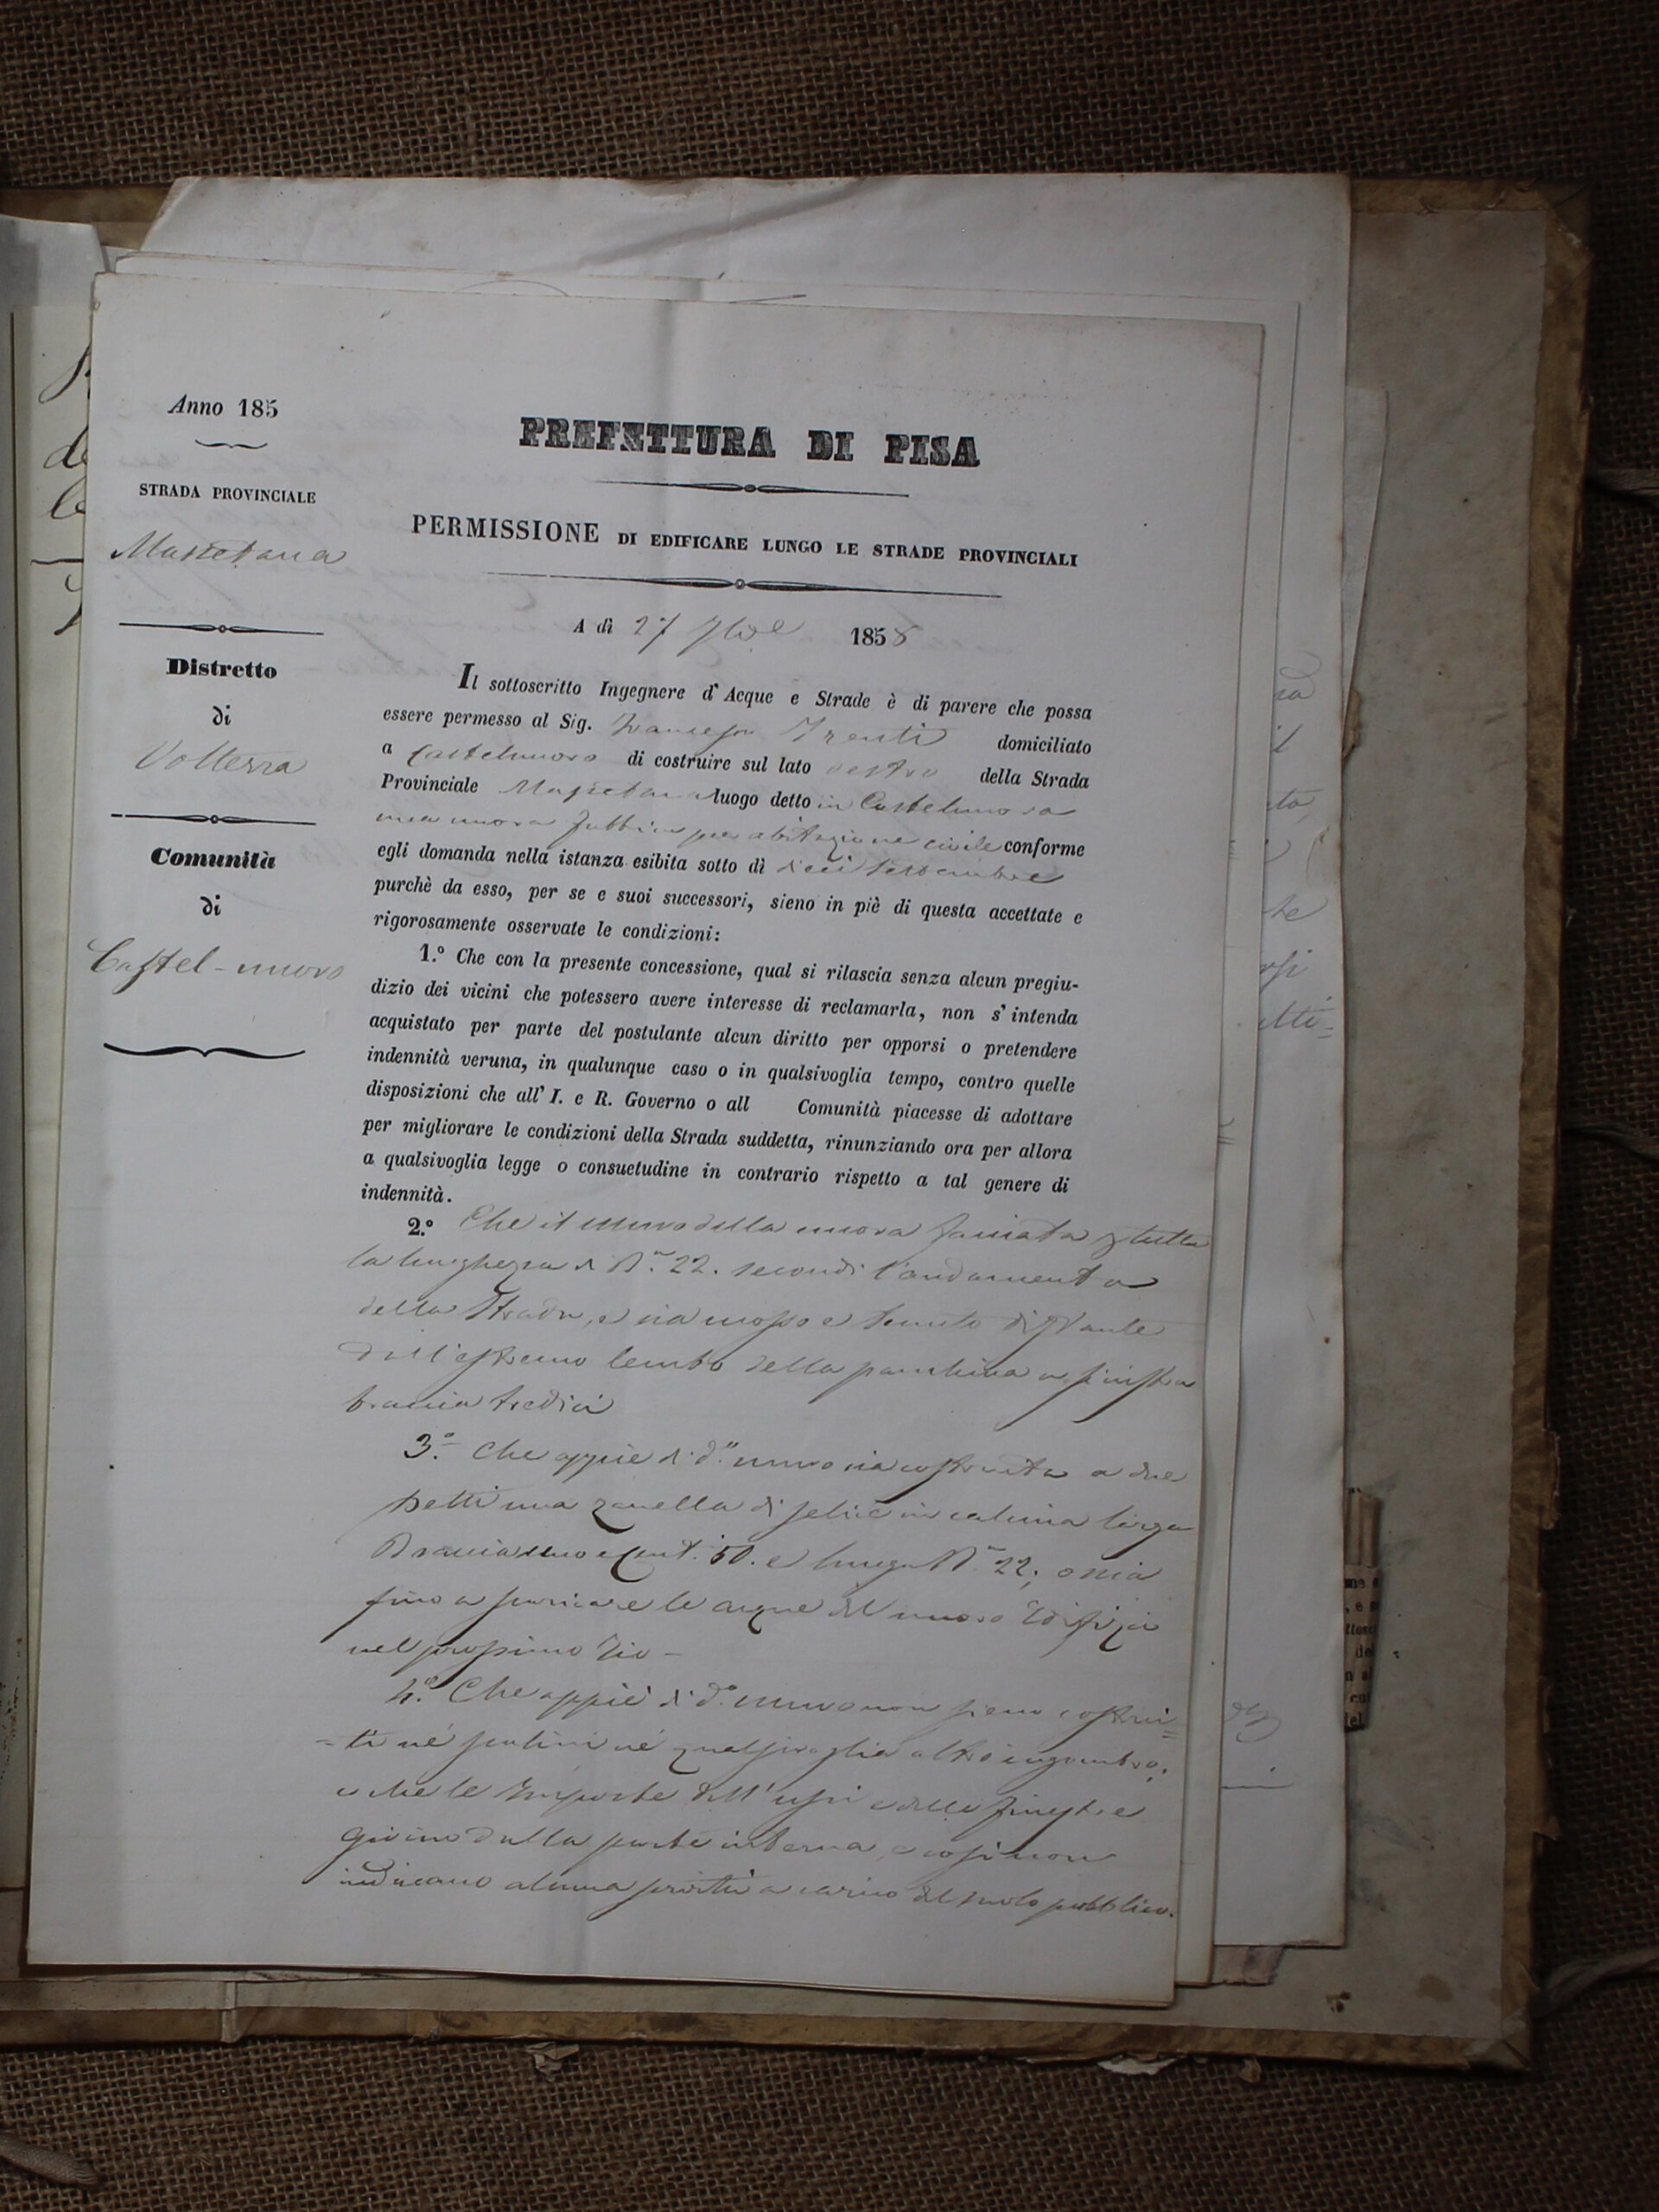 Anno 185
STRADA PROVINCIALE
Massetana
Distretto
di
Volterra
Comunità
di
Castel-nuovo
PREFETTURA DI PISA
PERMISSIONE DI EDIFICARE LUNGO LE STRADE PROVINCIALI
A dì 27 7bre 1858
Il sottoscritto Ingegnere d'Acque e Strade è di parere che possa
essere permesso al Sig. Francesco domiciliato
a Castelnuovo di costruire sul lato destro della Strada
Provinciale Massetana luogo detto in Castelnuovo
una nuova fabbrica per abitazione civile conforme
egli domanda nella istanza esibita sotto dì dieci Settembre
purchè da esso, per se e suoi successori, sieno in piè di questa accettate e
rigorosamente osservate le condizioni:
1.° Che con la presente concessione, qual si rilascia senza alcun pregiu-
dizio dei vicini che potessero avere interesse di reclamarla, non s'intenda
acquistato per parte del postulante alcun diritto per opporsi o pretendere
indennità veruna, in qualunque caso o in qualsivoglia tempo, contro quelle
disposizioni che all'I. e R. Governo o all Comunità piacesse di adottare
per migliorare le condizioni della Strada suddetta, rinunziando ora per allora
a qualsivoglia legge o consuetudine in contrario rispetto a tal genere di
indennità.
2.° Che il muro della nuova facciata tutta
la lunghezza di B.a 22. secondi l'andamento
della Strada, e sia mosso e tenuto distante
dall'estremo lembo della panchina a sinistra
braccia tredici
3.° Che appiè di d.o muro sia costruita a due
petti una zanella di selice in calcina larga
Braccia uno e cent. 50. e lunga B.a 22; ossia
fino a scaricare le acque del nuovo Edifizio
nel prossimo Rio -
4.° Che appiè di d.o muro non sieno costrui=
=ti nè scalini nè qualsivoglia altro ingombro;
e che le Imposte dell'usci e delle finestre
girino dalla parte interna, e così non
inducano alcuna servitù a carico del suolo pubblico.